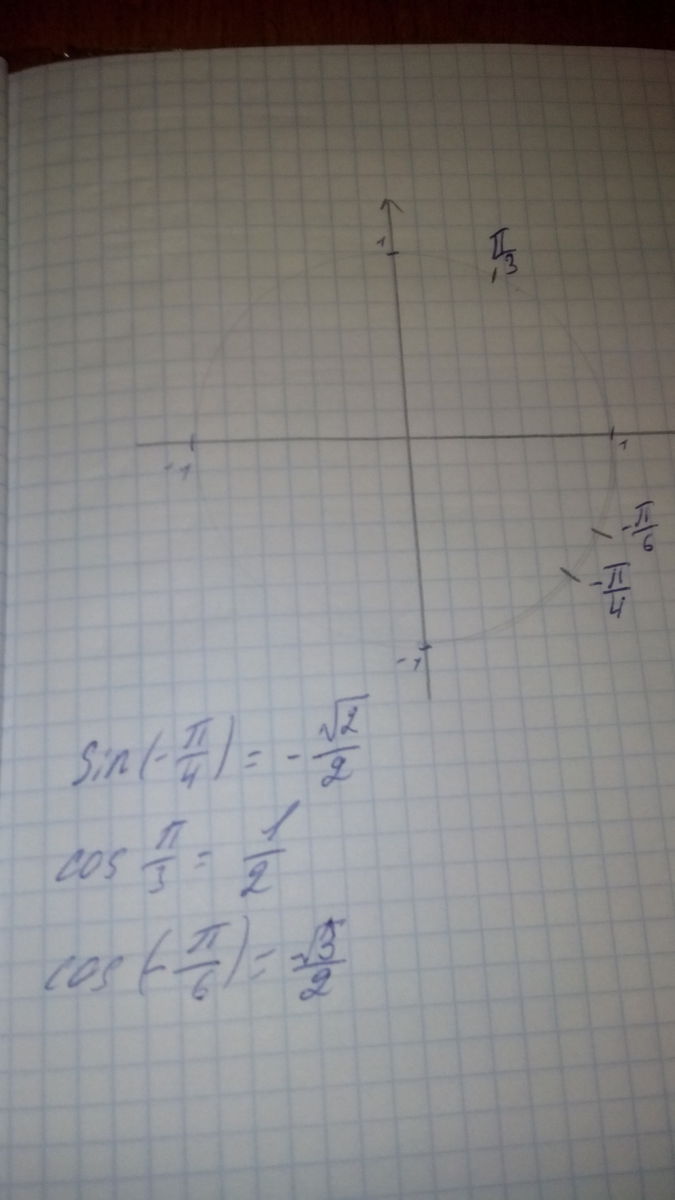 1
π/3
-1
1
-π/6
-π/4
-1
sin(-π/4) = -√2/2
cos π/3 = 1/2
cos(-π/6) = √3/2